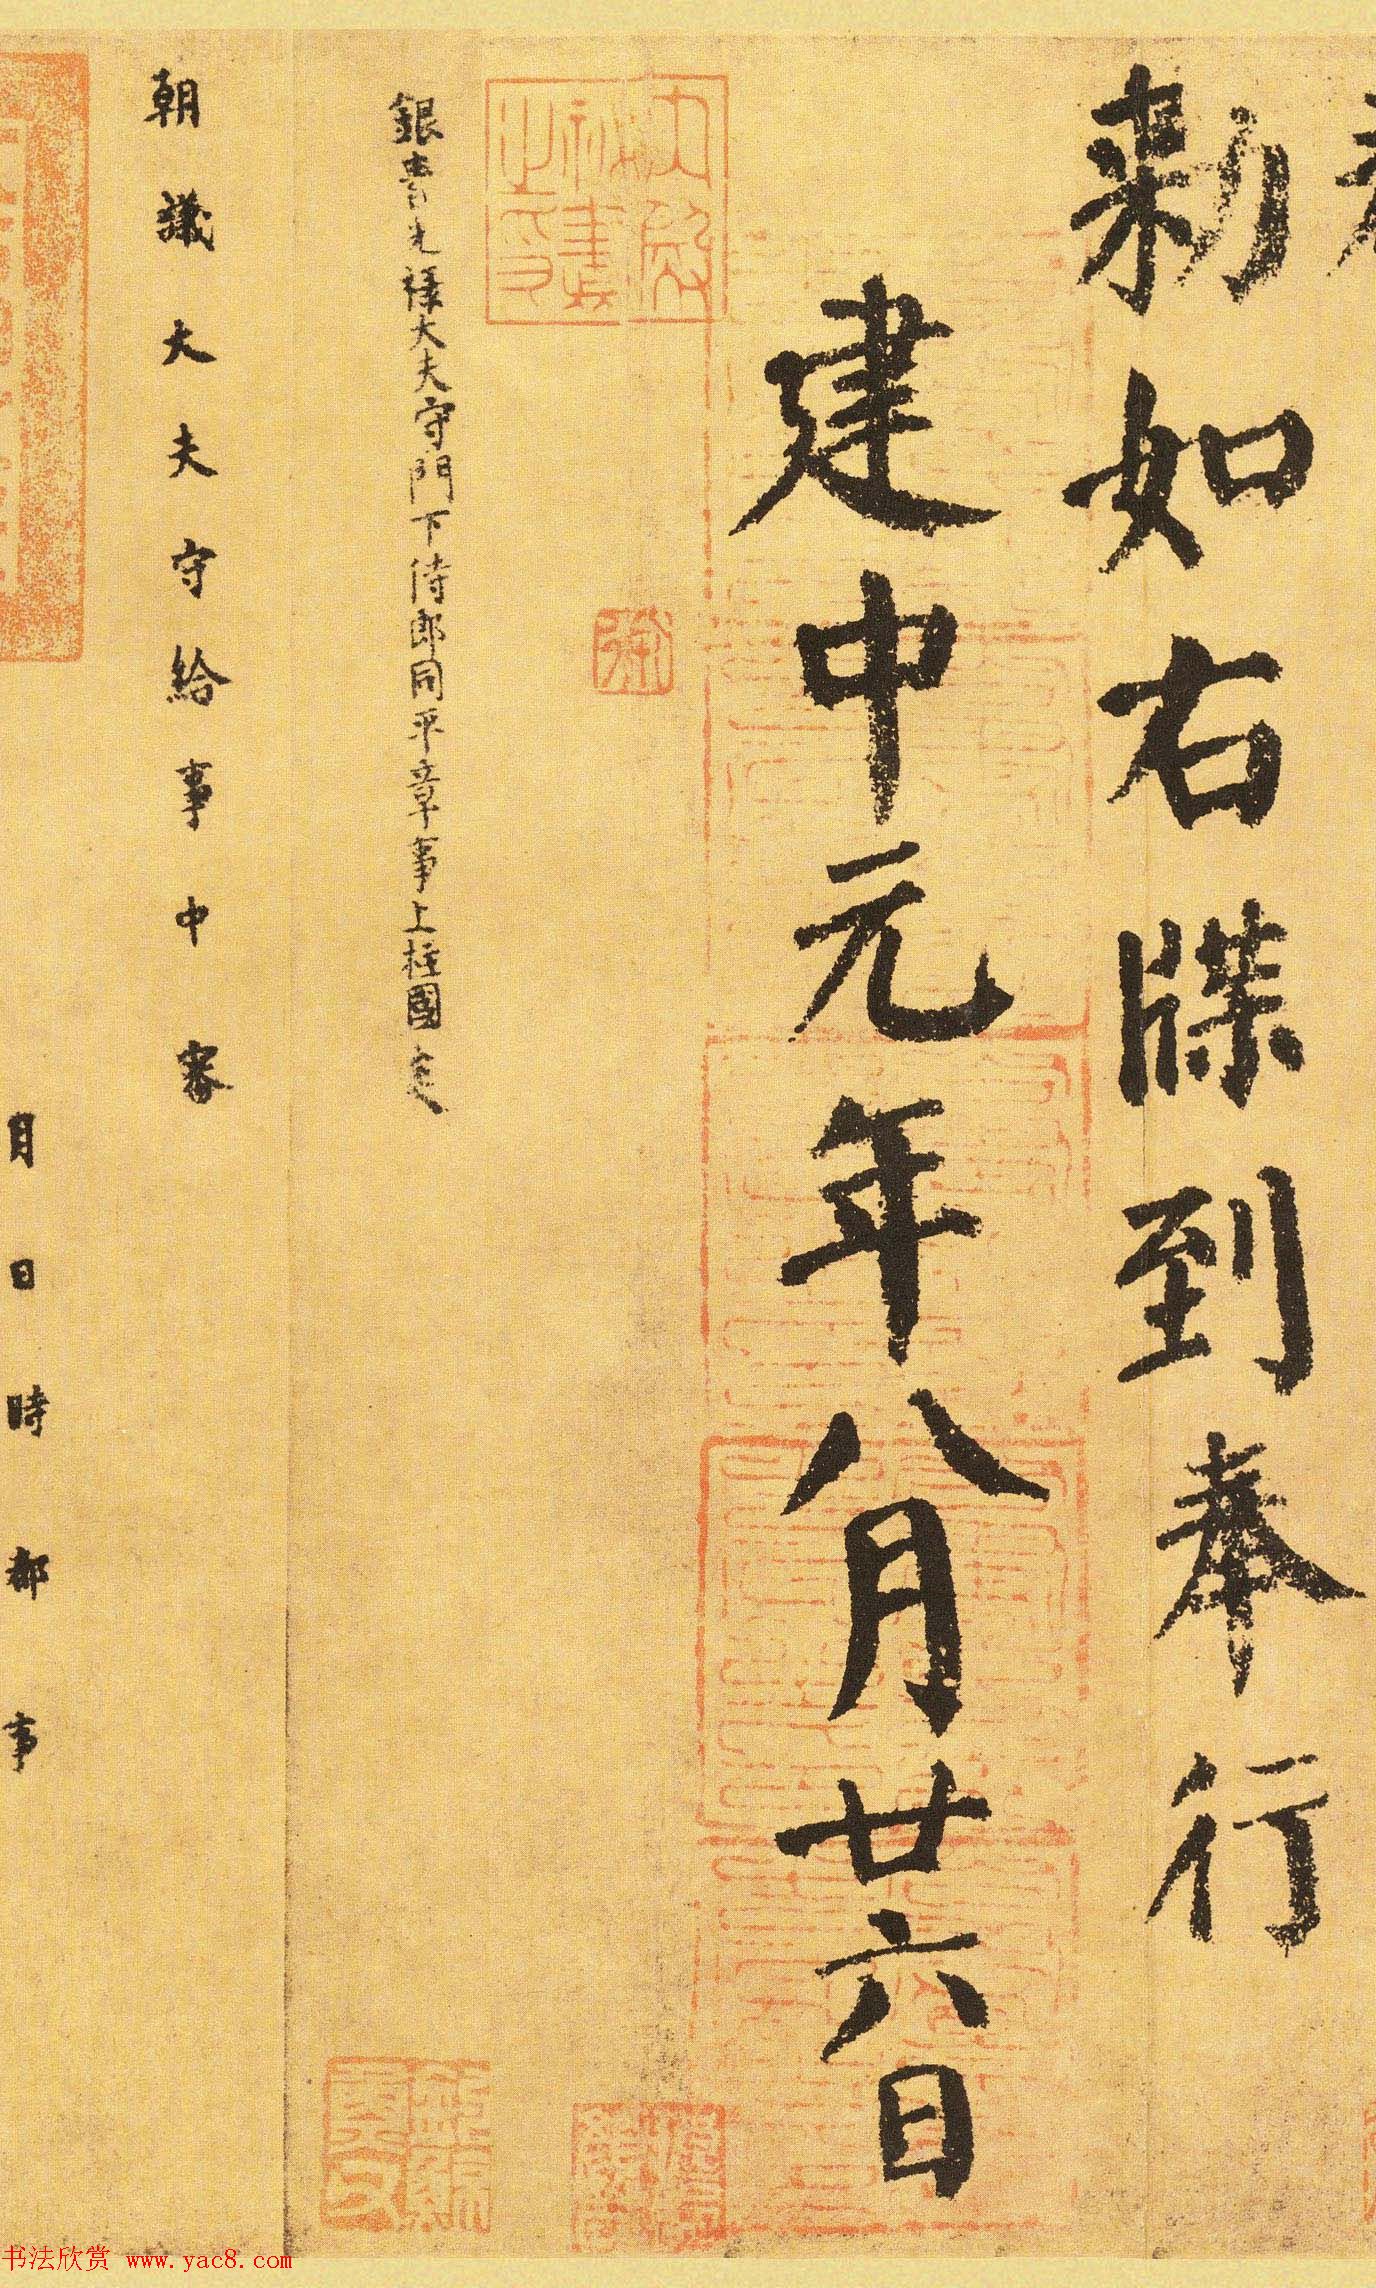 勑如右牒到奉行
建中元年八月廿六日
銀青光祿大夫守門下侍郎同平章事上柱國
朝議大夫守給事中審
月日時都事
书法欣赏 www.yac8.com